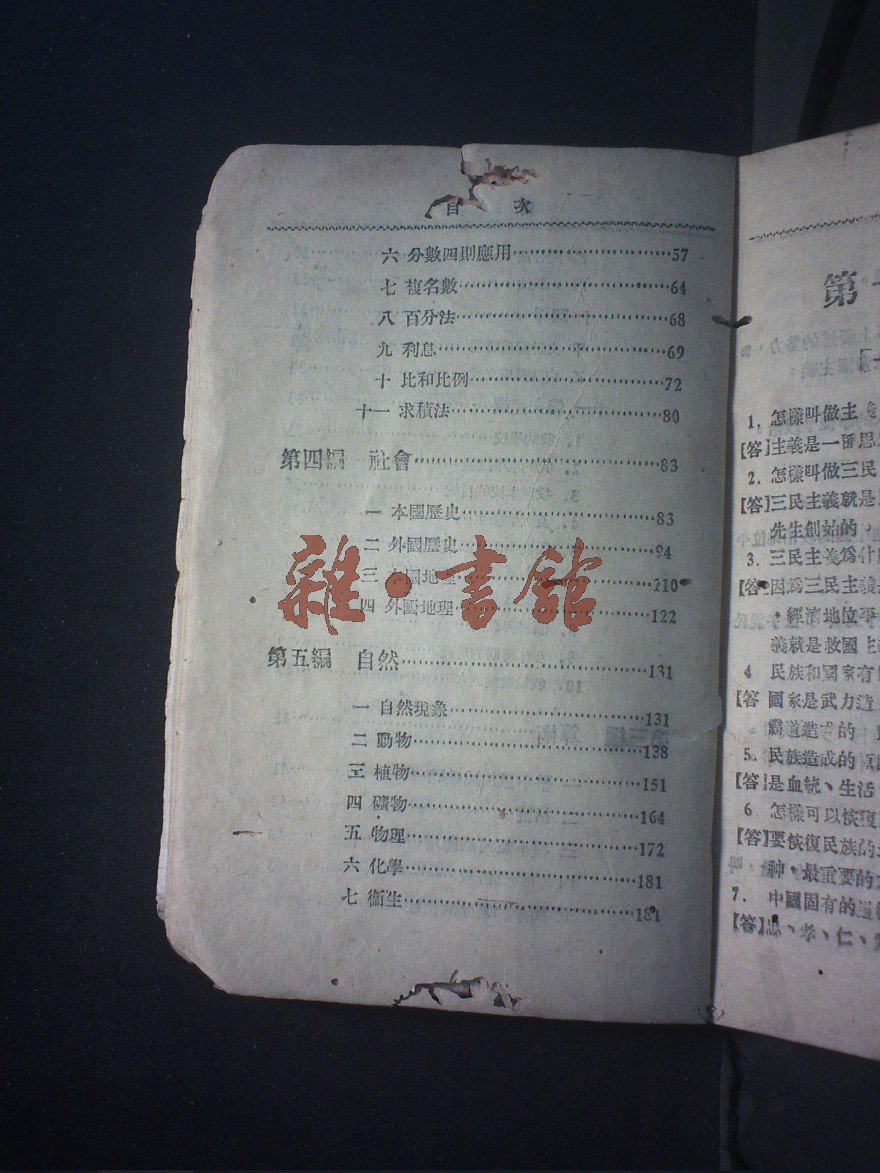 目 次
六 分數四則應用…………57
七 複名數…………64
八 百分法…………68
九 利息…………69
十 比和比例…………72
十一 求積法…………80
第四編 社會…………83
一 本國歷史…………83
二 外國歷史…………94
三 本國地理…………110
四 外國地理…………122
第五編 自然…………131
一 自然現象…………131
二 動物…………138
三 植物…………151
四 礦物…………164
五 物理…………172
六 化學…………181
七 衞生…………181
雜·書館
第
1. 怎樣叫做主
【答】主義是一種思
2. 怎樣叫做三民
【答】三民主義就是
先生創始的,
3. 三民主義爲什
【答】因爲三民主義
,經濟地位平
義就是救國主
4 民族和國家有
【答 國家是武力造
霸道造成的
5. 民族造成的原
【答】是血統、生活
6 怎樣可以恢復
【答】要恢復民族的
神,最重要的
7. 中國固有的道德
【答】忠、孝、仁、